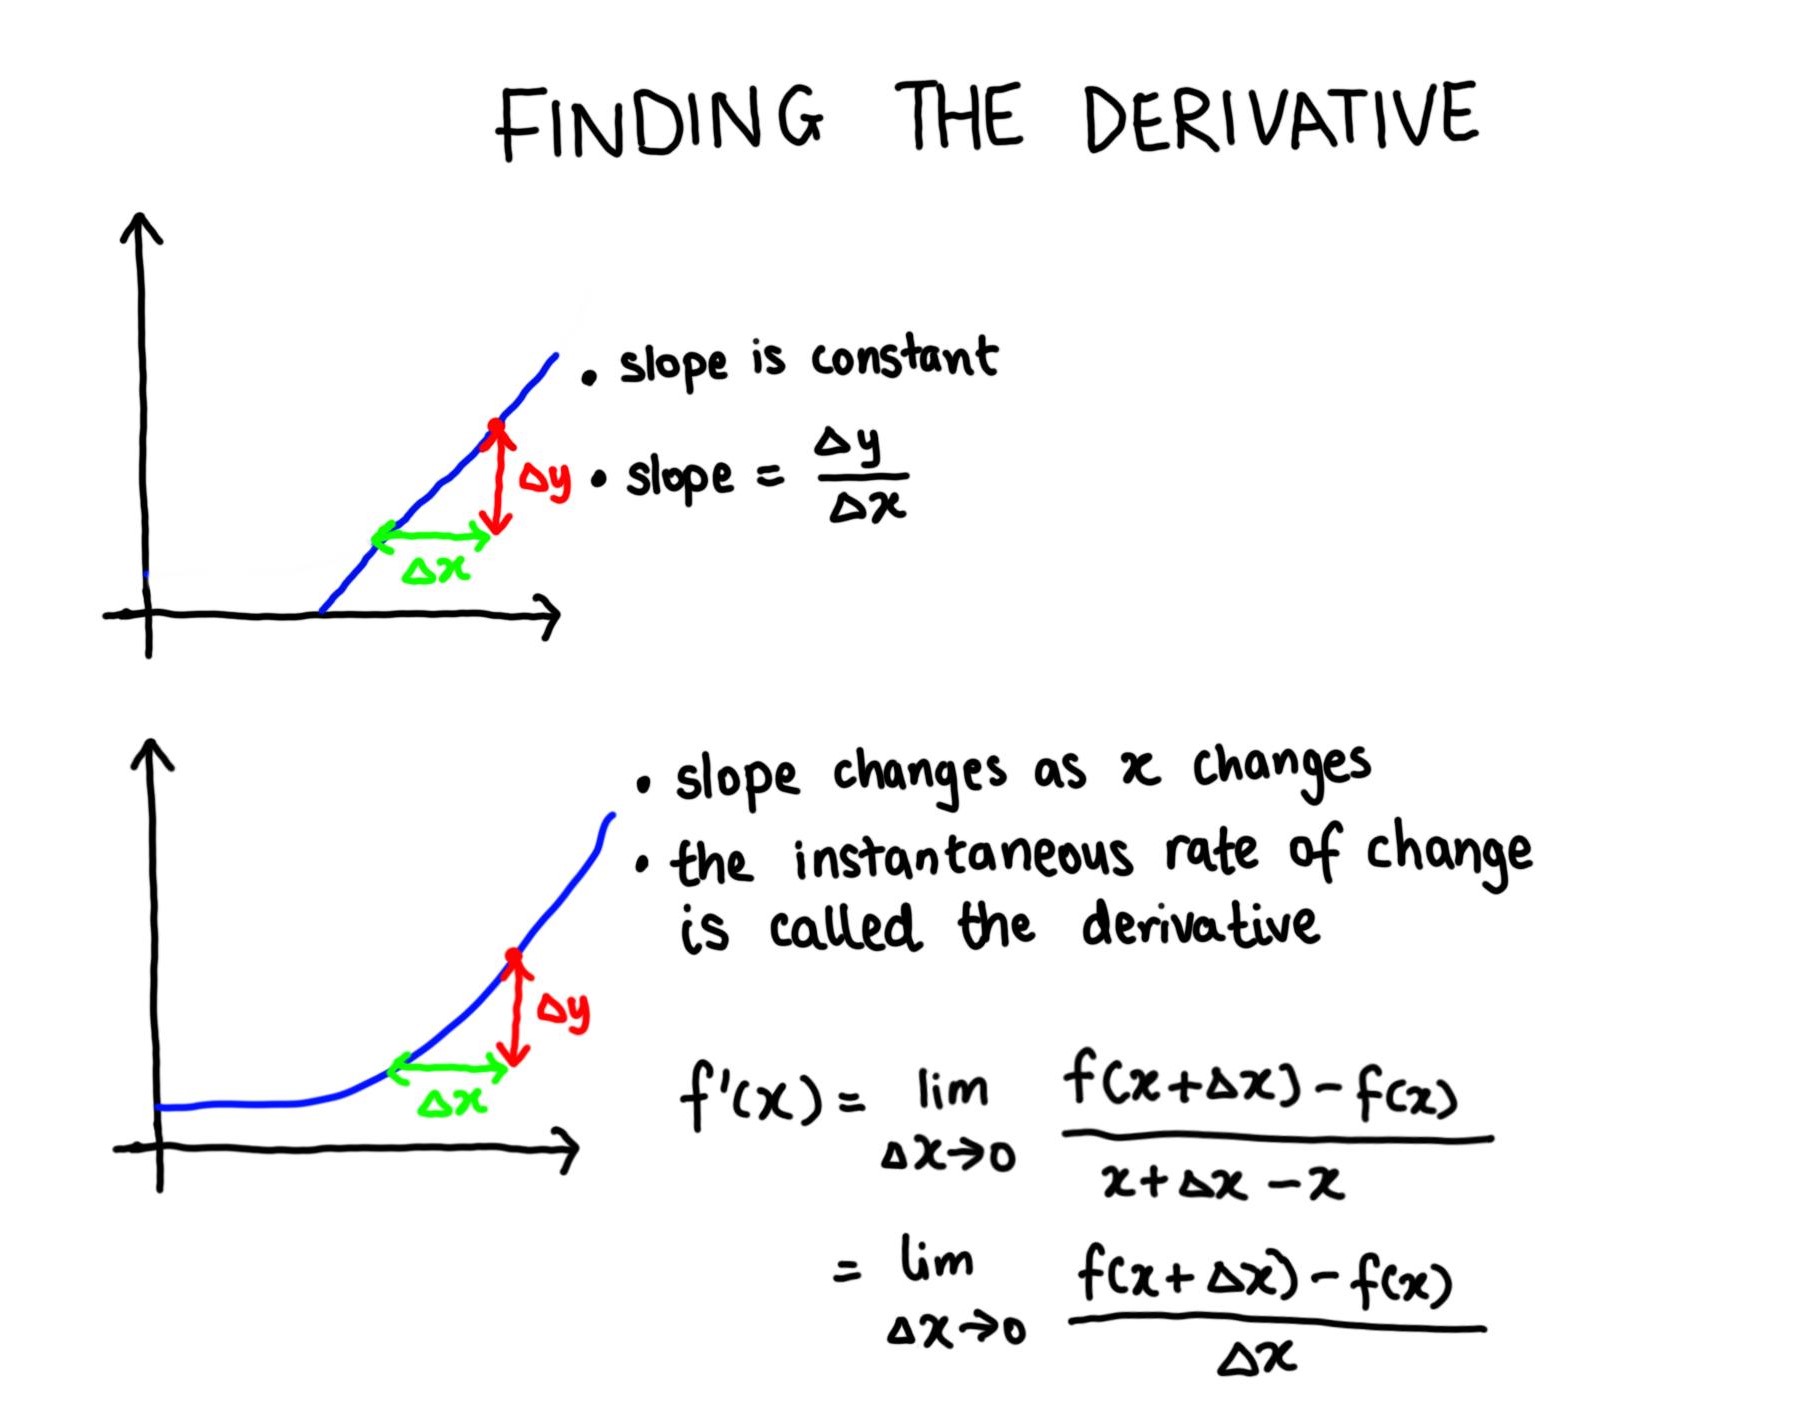 FINDING THE DERIVATIVE
• slope is constant
Δy • slope = Δy/Δx
Δx
• slope changes as x changes
• the instantaneous rate of change
is called the derivative
Δy
Δx
f'(x) = lim Δx→0 (f(x+Δx) - f(x))/(x+Δx-x)
= lim Δx→0 (f(x+Δx) - f(x))/Δx